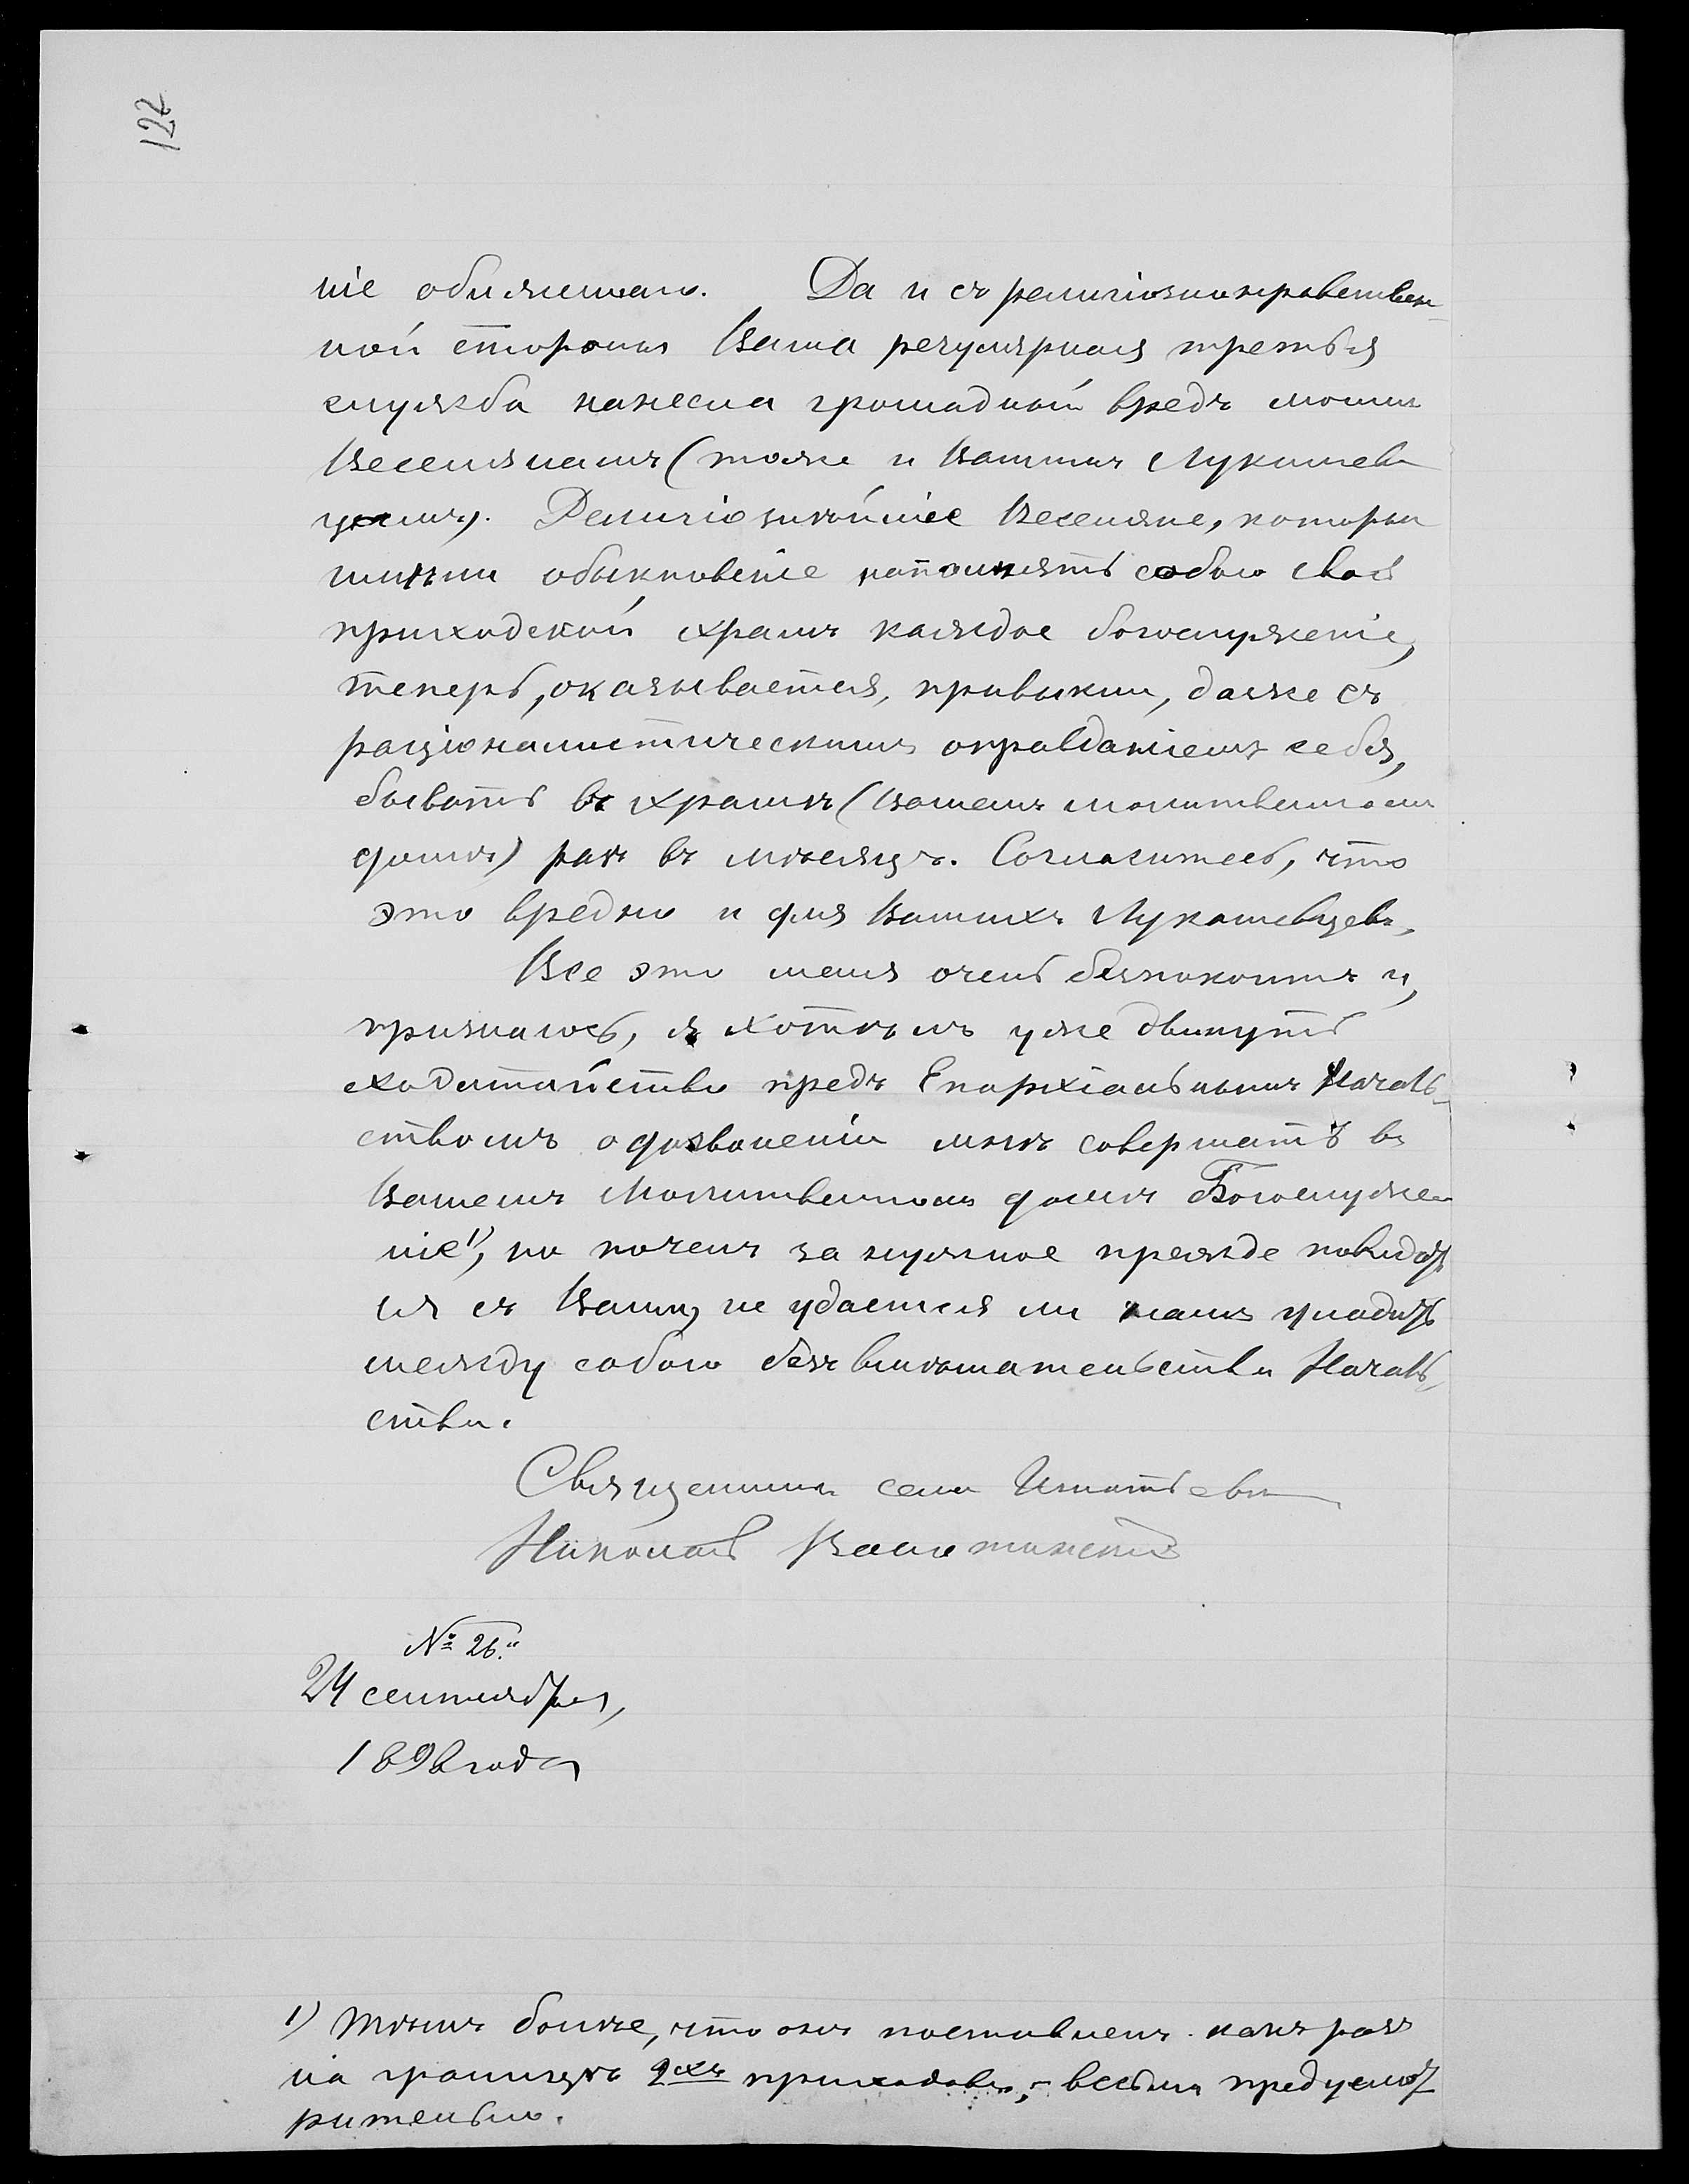 122
ніе обиженнаго. Да и съ религіознонравствен-
ной стороны Ваша регулярная третья
служба нанесла громадный вредъ моимъ
Веселянамъ (тоже и Вашимъ Лукашев-
цамъ). Религіознѣйшіе Веселяне, которые
имѣли обыкновеніе наполнять собою свой
приходской храмъ каждое богослуженіе,
теперь, оказывается, привыкли, даже съ
раціоналистическимъ оправданіемъ себя,
бывать въ храмѣ (Вашемъ молитвенномъ
домѣ) разъ въ мѣсяцъ. Согласитесь, что
это вредно и для Вашихъ Лукашевцевъ.
Все это меня очень безпокоитъ и,
признаюсь, я хотѣлъ уже двинуть
ходатайство предъ Епархіальнымъ Началь-
ствомъ о дозволеніи мнѣ совершать въ
Вашемъ Молитвенномъ домѣ Богослуже-
ніе 1), но почелъ за нужное прежде повидать-
ся съ Вами, не удастся ли намъ уладить
между собою безъ вмѣшательства Началь-
ства.
Священникъ села Игнатьева
Николай
№ 26.
24 сентября,
1898 года
1) Тѣмъ болѣе, что онъ поставленъ какъ разъ
на границѣ 2хъ приходовъ, – весьма предусмот-
рительно.